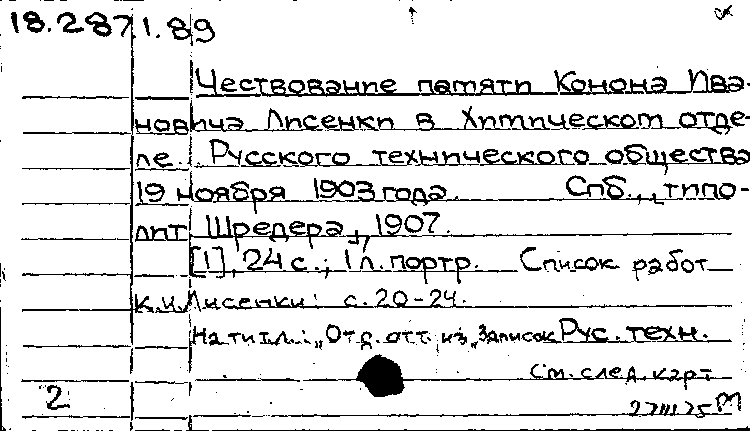 18.287.1.89
Чествование памяти Конона Ива-
новича Лисенки в Химическом отде-
ле Русского технического общества
19 ноября 1903 года. Спб., типо-
лит. Шредера, 1907.
[1], 24 с.; 1 л. портр. Список работ
К.И.Лисенки: с. 20-24.
На тит.л.: „Отд. отт. из „Записок Рус. техн.
См. след. карт
2